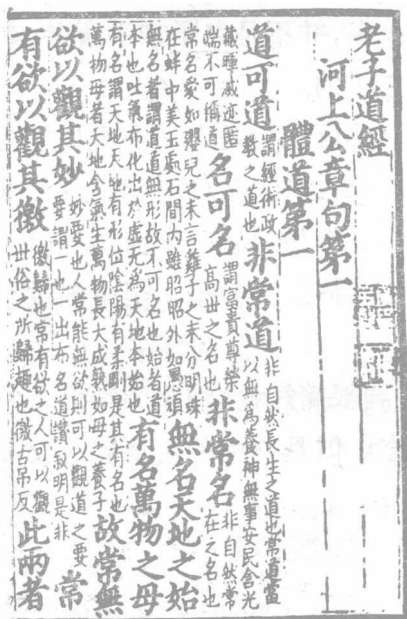 老子道經
河上公章句第一
體道第一
道可道謂經術政教之道也非常道非自然長生之道也常道當以無為養神無事安民含光
藏暉滅迹匿端不可稱道名可名謂富貴尊榮高世之名也非常名非自然常在之名也
常名愛如嬰兒之未言雞子之未分明珠在蚌中美玉處石間內雖昭昭外如愚頑無名天地之始
無名者謂道道無形故不可名也始者道本也吐氣布化出於虛无為天地本始也有名萬物之母
有名謂天地天地有形位陰陽有柔剛是其有名也萬物母者天地含氣生萬物長大成熟如母之養子故常無
欲以觀其妙妙要也人常能無欲則可以觀道之要要謂一也一出布名道讚敘明是非常
有欲以觀其徼徼歸也常有欲之人可以觀世俗之所歸趣也徼古弔反此兩者